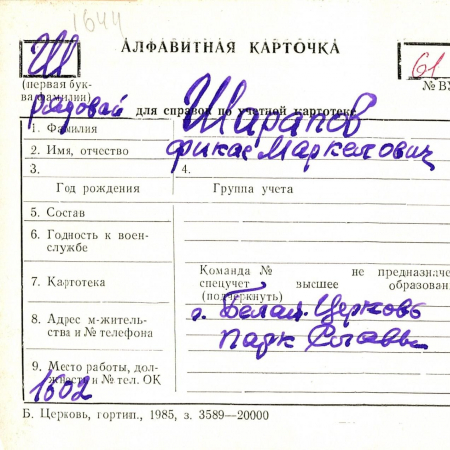 1644
Ш
АЛФАВИТНАЯ КАРТОЧКА
61
(первая бук-
ва фамилии)
№ ВУ
рядовой
для справок по учетной картотеке
1. Фамилия
Шарапов
2. Имя, отчество
Фикас Маркелович
3.
4.
Год рождения
Группа учета
5. Состав
6. Годность к воен-
службе
7. Картотека
Команда № не предназначе
спецучет высшее образован
(подчеркнуть)
8. Адрес м-житель-
ства и № телефона
г. Белая Церковь
парк Славы
9. Место работы, дол-
жность и № тел. ОК
1602
Б. Церковь, гортип., 1985, з. 3589—20000